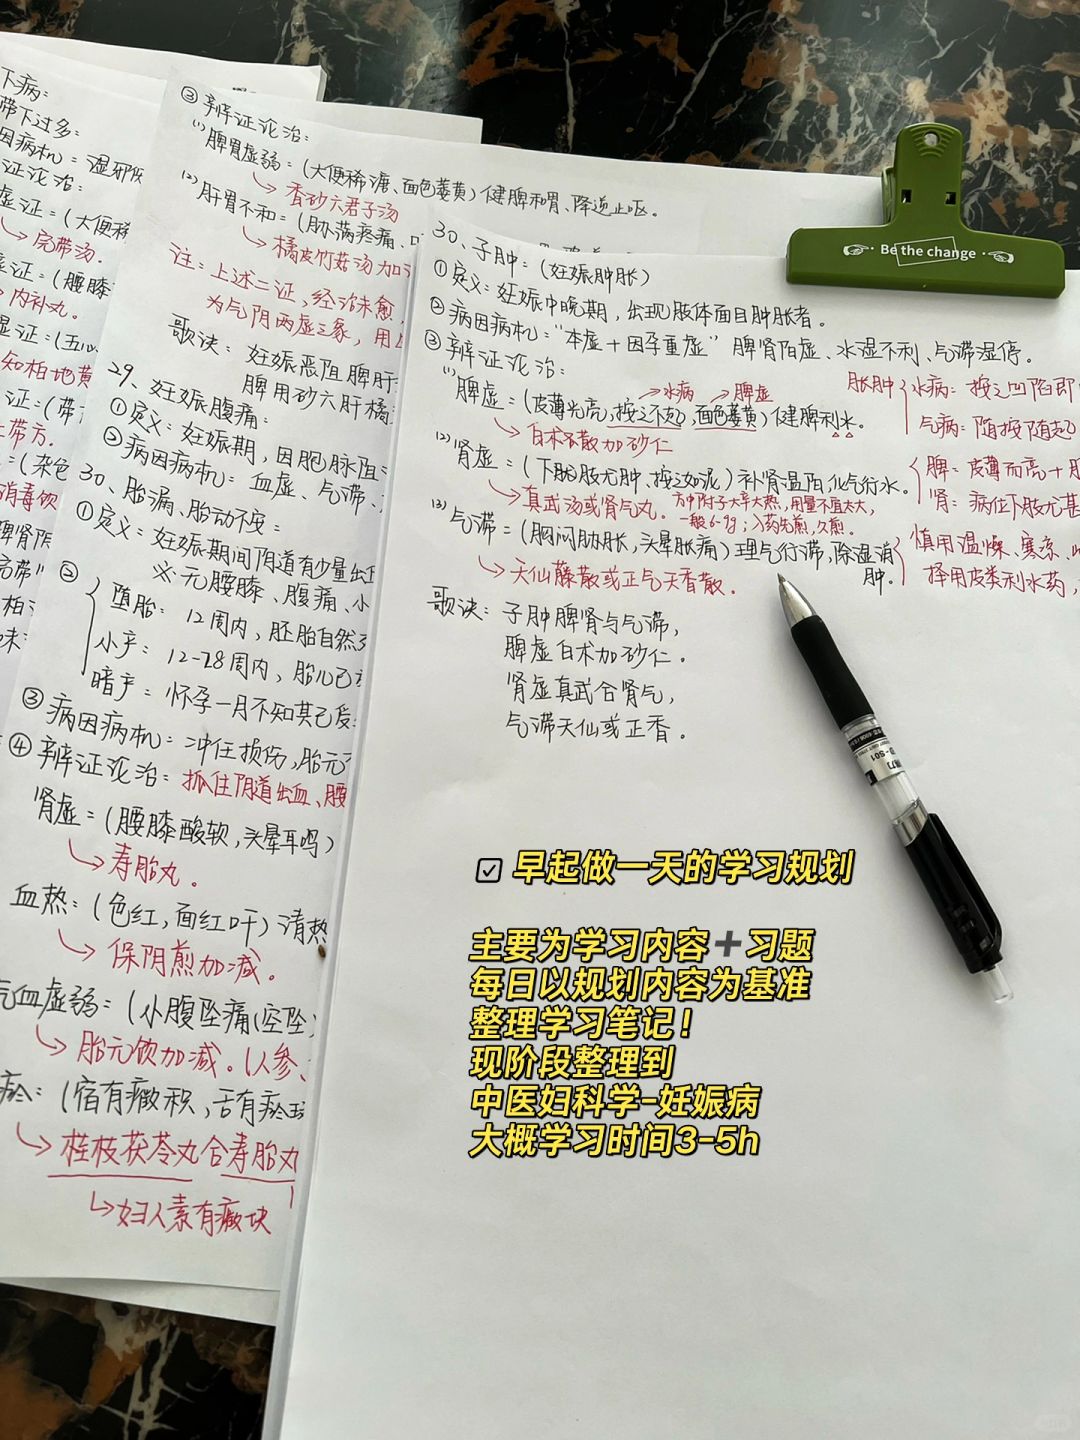 下病：
带下过多：
因病机：湿邪
证论治：
虚证：（大便稀
完带汤.
证：（腰膝
内补丸.
湿证：（五心
知柏地黄
证：（带
带方.
：（杂色
消毒饮
脾肾阴
完带
③辨证论治：
(1)脾胃虚弱：（大便稀溏、面色萎黄）健脾和胃、降逆止呕。
香砂六君子汤
(2)肝胃不和：（胁满疼痛、
橘皮竹茹汤加
注：上述二证，经治未愈，
为气阴两虚之象，用
歌诀：妊娠恶阻脾肝
脾用砂六肝橘
29、妊娠腹痛：
①定义：妊娠期，因胞脉阻
②病因病机：血虚、气滞、
30、胎漏、胎动不安：
①定义：妊娠期间阴道有少量出血
※无腰膝、腹痛、小
②
堕胎：12周内，胚胎自然
小产：12-28周内，胎儿已
暗产：怀孕一月不知其已受
③病因病机：冲任损伤，胎元
④辨证论治：抓住阴道出血、腰
肾虚：（腰膝酸软，头晕耳鸣）
寿胎丸.
血热：（色红，面红）清热
保阴煎加减.
气血虚弱：（小腹坠痛（空坠）
胎元饮加减.（人参、
瘀：（宿有癥积，舌有瘀
桂枝茯苓丸合寿胎丸
妇人素有癥块
30、子肿：（妊娠肿胀）
①定义：妊娠中晚期，出现肢体面目肿胀者。
②病因病机：“本虚＋因孕重虚”脾肾阳虚、水湿不利、气滞湿停.
③辨证论治：
→水病→脾虚
(1)脾虚：（皮薄光亮，按之不起，面色萎黄）健脾利水.
白术散加砂仁
(2)肾虚：（下肢尤肿、按之如泥）补肾温阳，化气行水.
真武汤或肾气丸. 方中附子大辛大热，用量不宜太大，
一般6-9g；入药先煎，久煎.
(3)气滞：（胸闷胁胀，头晕胀痛）理气行滞，除湿消
肿.
天仙藤散或正气天香散.
胀肿
水病：按之凹陷即
气病：随按随起
脾：皮薄而亮＋
肾：病位下肢尤甚
慎用温燥、寒凉、
择用皮类利水药，
歌诀：子肿脾肾与气滞，
脾虚白术加砂仁.
肾虚真武合肾气，
气滞天仙或正香.
Be the change
☑ 早起做一天的学习规划
主要为学习内容➕习题
每日以规划内容为基准
整理学习笔记！
现阶段整理到
中医妇科学-妊娠病
大概学习时间3-5h